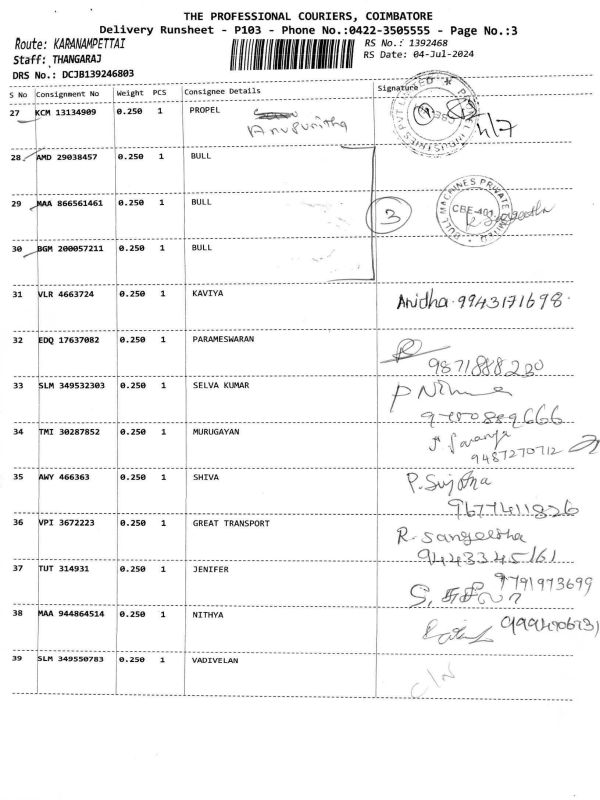 THE PROFESSIONAL COURIERS, COIMBATORE
Delivery Runsheet - P103 - Phone No.:0422-3505555 - Page No.:3
Route: KARANAMPETTAI
RS No.: 1392468
Staff: THANGARAJ
RS Date: 04-Jul-2024
DRS No.: DCJB139246803
S No Consignment No Weight PCS Consignee Details Signature
27 KCM 13134909 0.250 1 PROPEL
Anupunitha
4/7
28 AMD 29038457 0.250 1 BULL
29 MAA 866561461 0.250 1 BULL
3
BULL MACHINES PRIVATE LIMITED
CBE-401
Sangeetha
30 BGM 200057211 0.250 1 BULL
31 VLR 4663724 0.250 1 KAVIYA
Anidha. 9943171698.
32 EDQ 17637082 0.250 1 PARAMESWARAN
9871888230
33 SLM 349532303 0.250 1 SELVA KUMAR
34 TMI 30287852 0.250 1 MURUGAYAN
9487270712
35 AWY 466363 0.250 1 SHIVA
9677411826
36 VPI 3672223 0.250 1 GREAT TRANSPORT
R. Sangeetha
9443345161
37 TUT 314931 0.250 1 JENIFER
9791973699
38 MAA 944864514 0.250 1 NITHYA
39 SLM 349550783 0.250 1 VADIVELAN
C/N